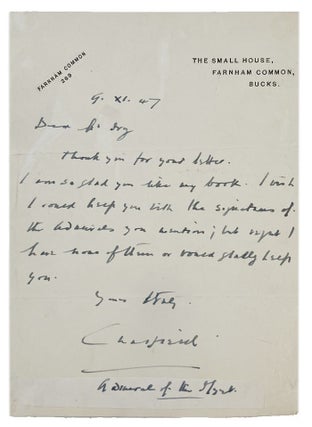 FARNHAM COMMON
269
THE SMALL HOUSE,
FARNHAM COMMON,
BUCKS.
9. XI. 47
Dear
Thank you for your letter.
I am so glad you like my book. I wish
I could help you with the signatures of
the Admirals you mention; but regret I
have none of them or would gladly help
you.
Yours truly
Chatfield
Admiral of the Fleet.